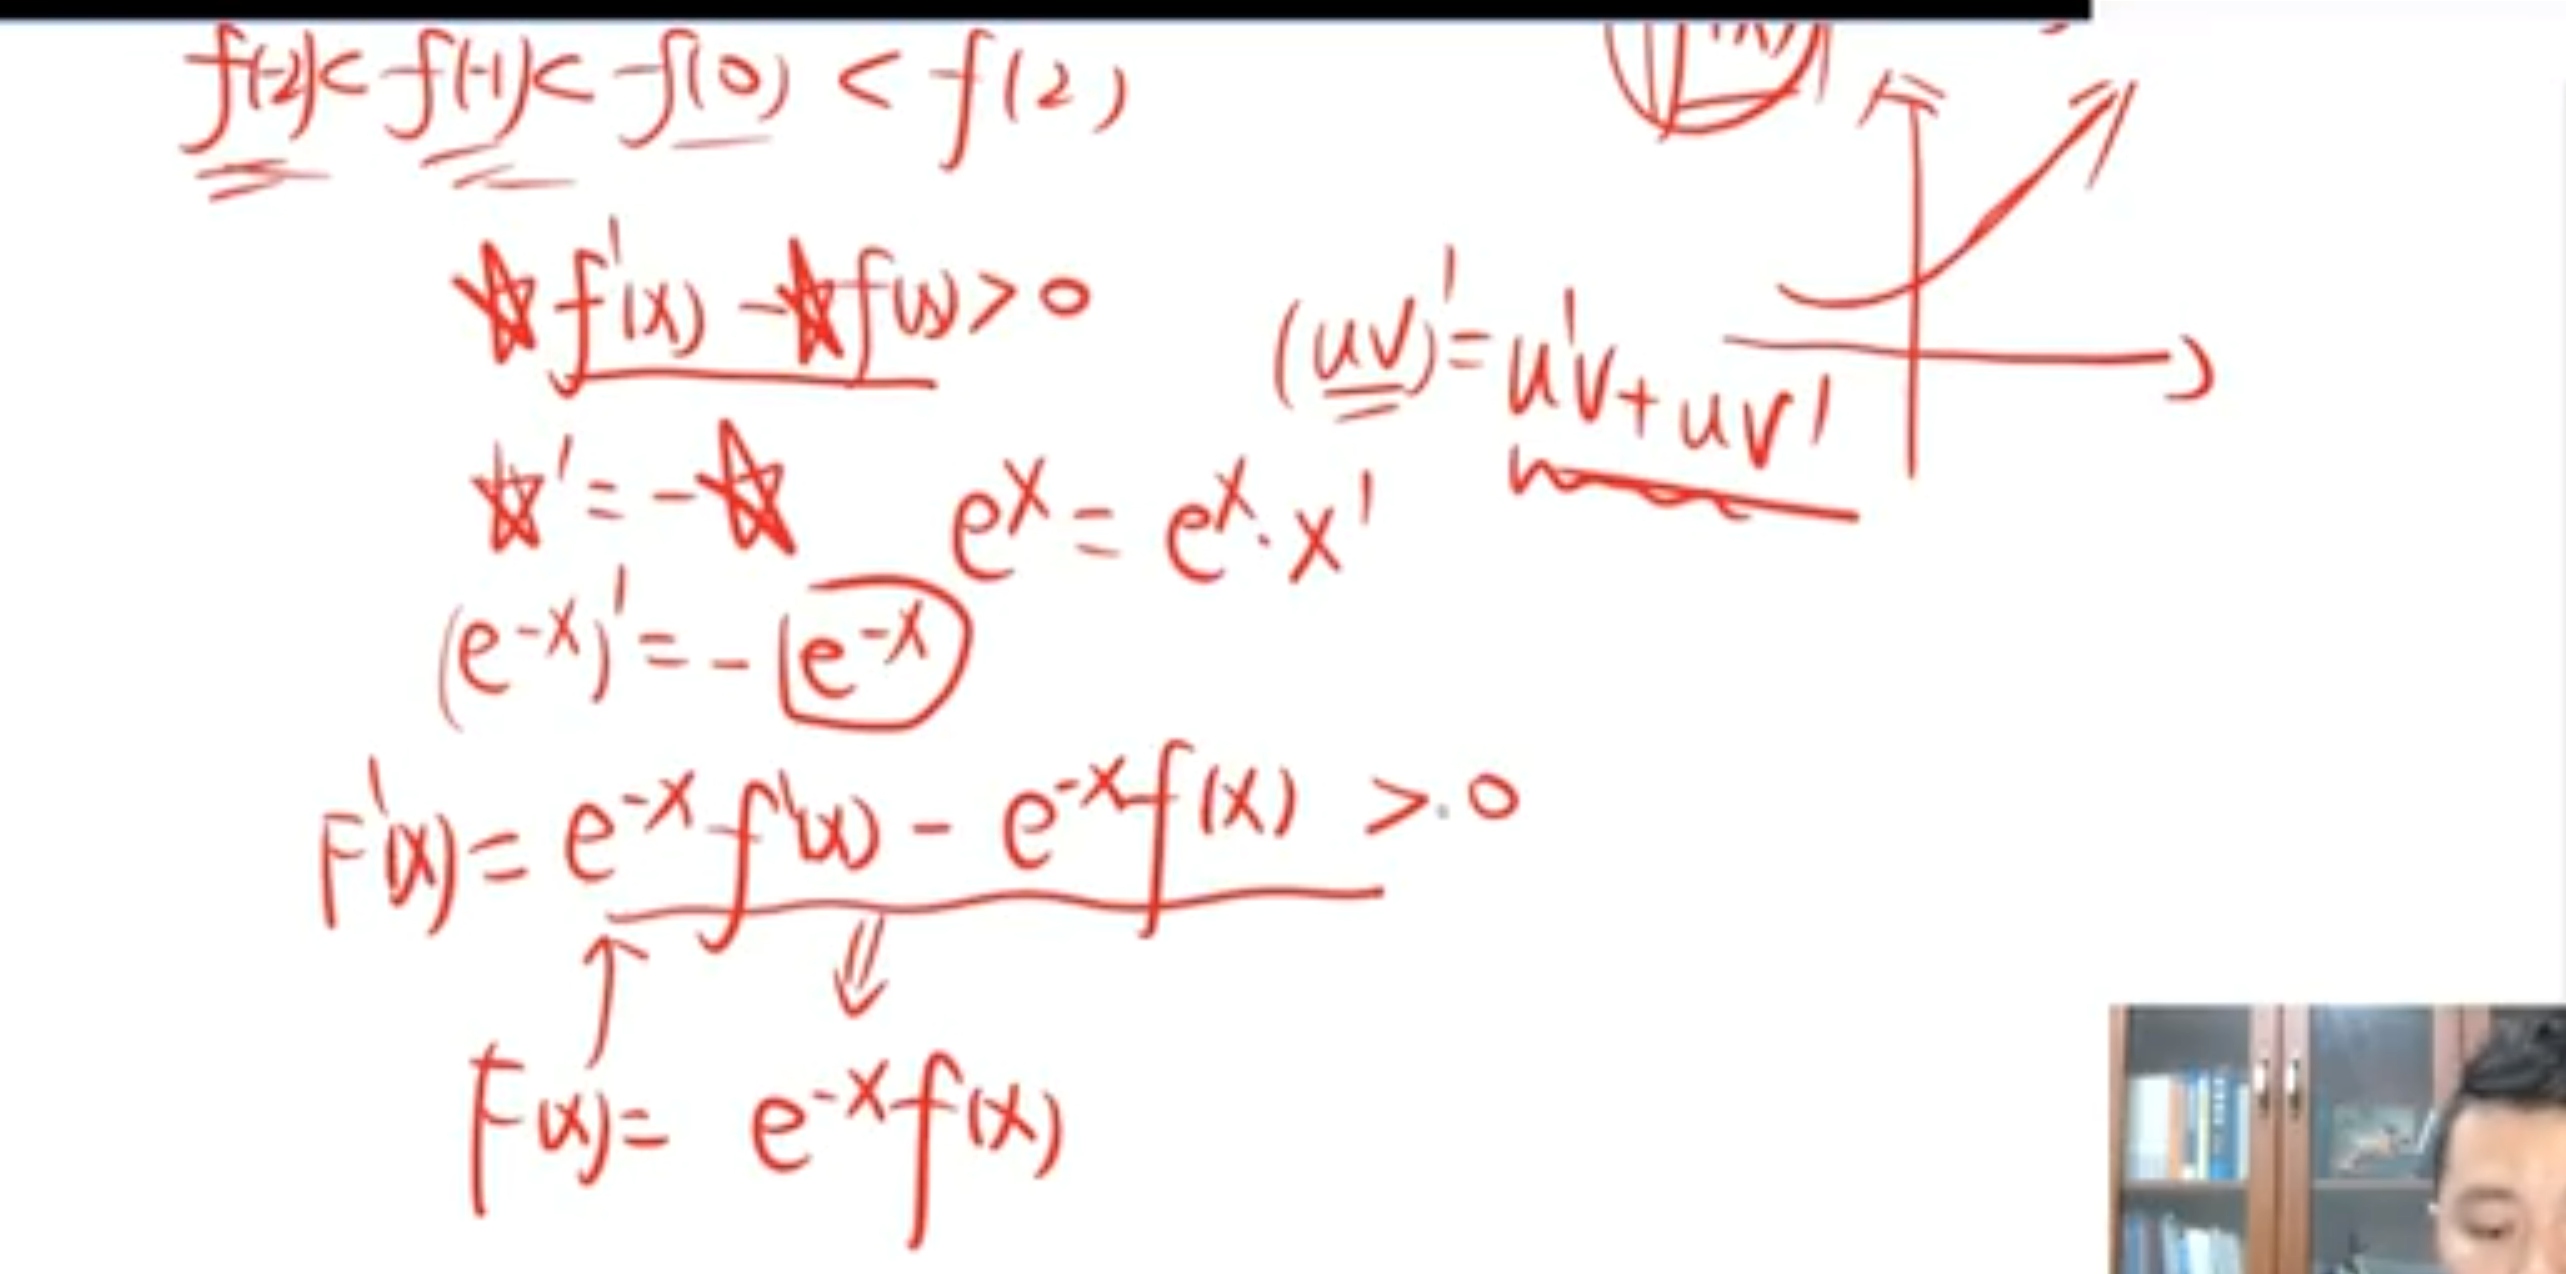 f(-2)< f(-1)< f(0) < f(2)
☆f'(x) -☆f(x)>0
(uv)'= u'v+uv'
☆'= -☆
e^x = e^x·x'
(e^-x)'= -e^-x
F'(x)= e^-x f'(x) - e^-x f(x) >0
F(x)= e^-x f(x)